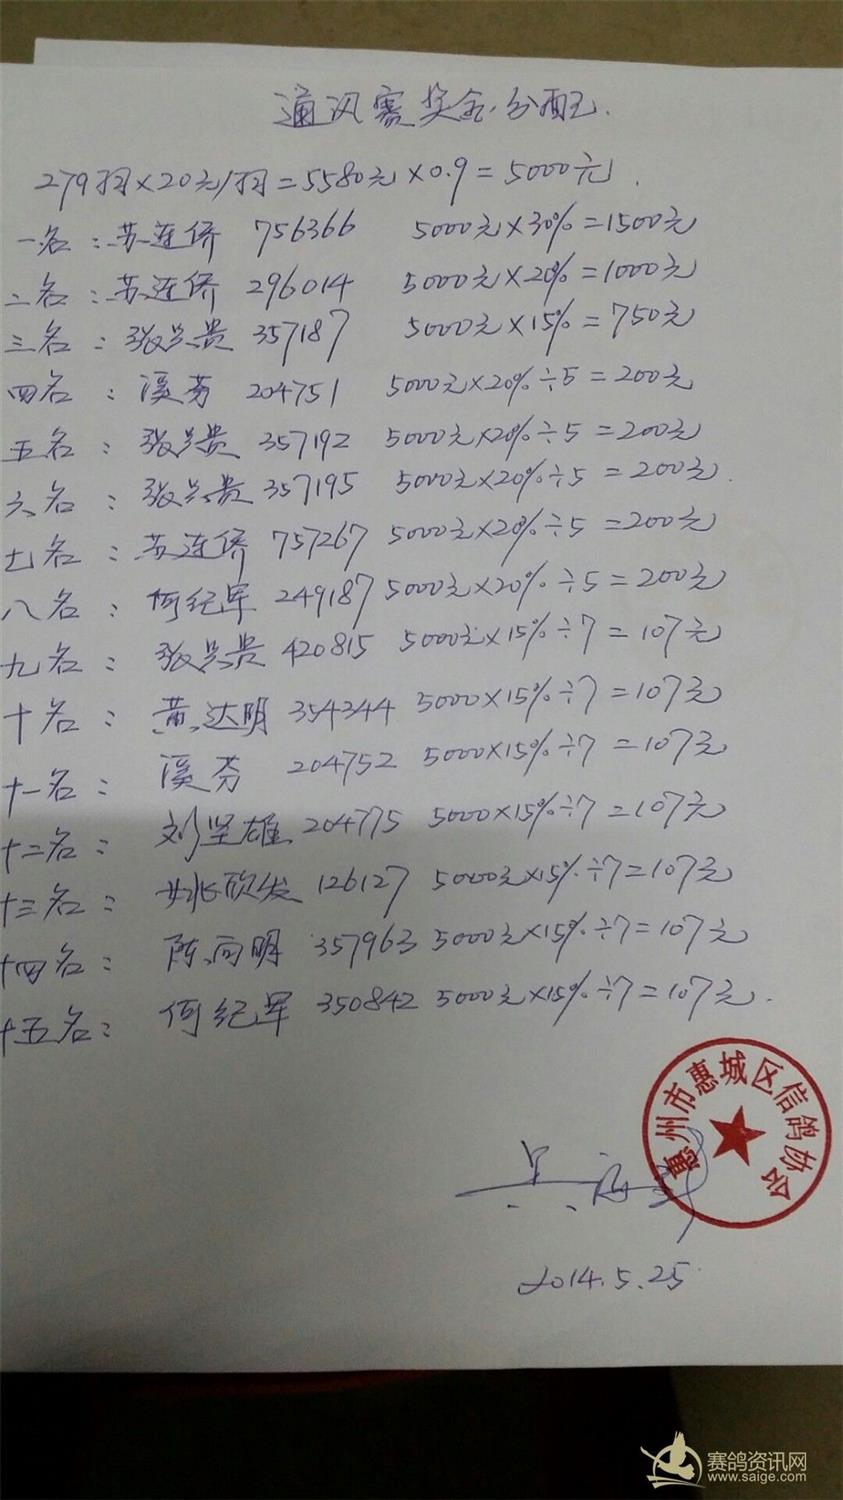 通讯赛奖金分配.
279羽×20元/羽=5580元×0.9=5000元.
一名：苏连侨 756366 5000元×30%=1500元
二名：苏连侨 296014 5000元×20%=1000元
三名：张兴贵 357187 5000元×15%=750元
四名：溪芬 204751 5000元×20%÷5=200元
五名：张兴贵 357192 5000元×20%÷5=200元
六名：张兴贵 357195 5000元×20%÷5=200元.
七名：苏连侨 757267 5000元×20%÷5=200元
八名：何纪军 249187 5000元×20%÷5=200元
九名：张兴贵 420815 5000元×15%÷7=107元
十名：黄达明 354344 5000×15%÷7=107元
十一名：溪芬 204752 5000×15%÷7=107元
十二名：刘坚雄 204775 5000×15%÷7=107元
十三名：姚欣发 126127 5000元×15%÷7=107元
十四名：陈向明 357963 5000元×15%÷7=107元
十五名：何纪军 350842 5000元×15%÷7=107元.
惠州市惠城区信鸽协会
2014.5.25
赛鸽资讯网
www.saige.com